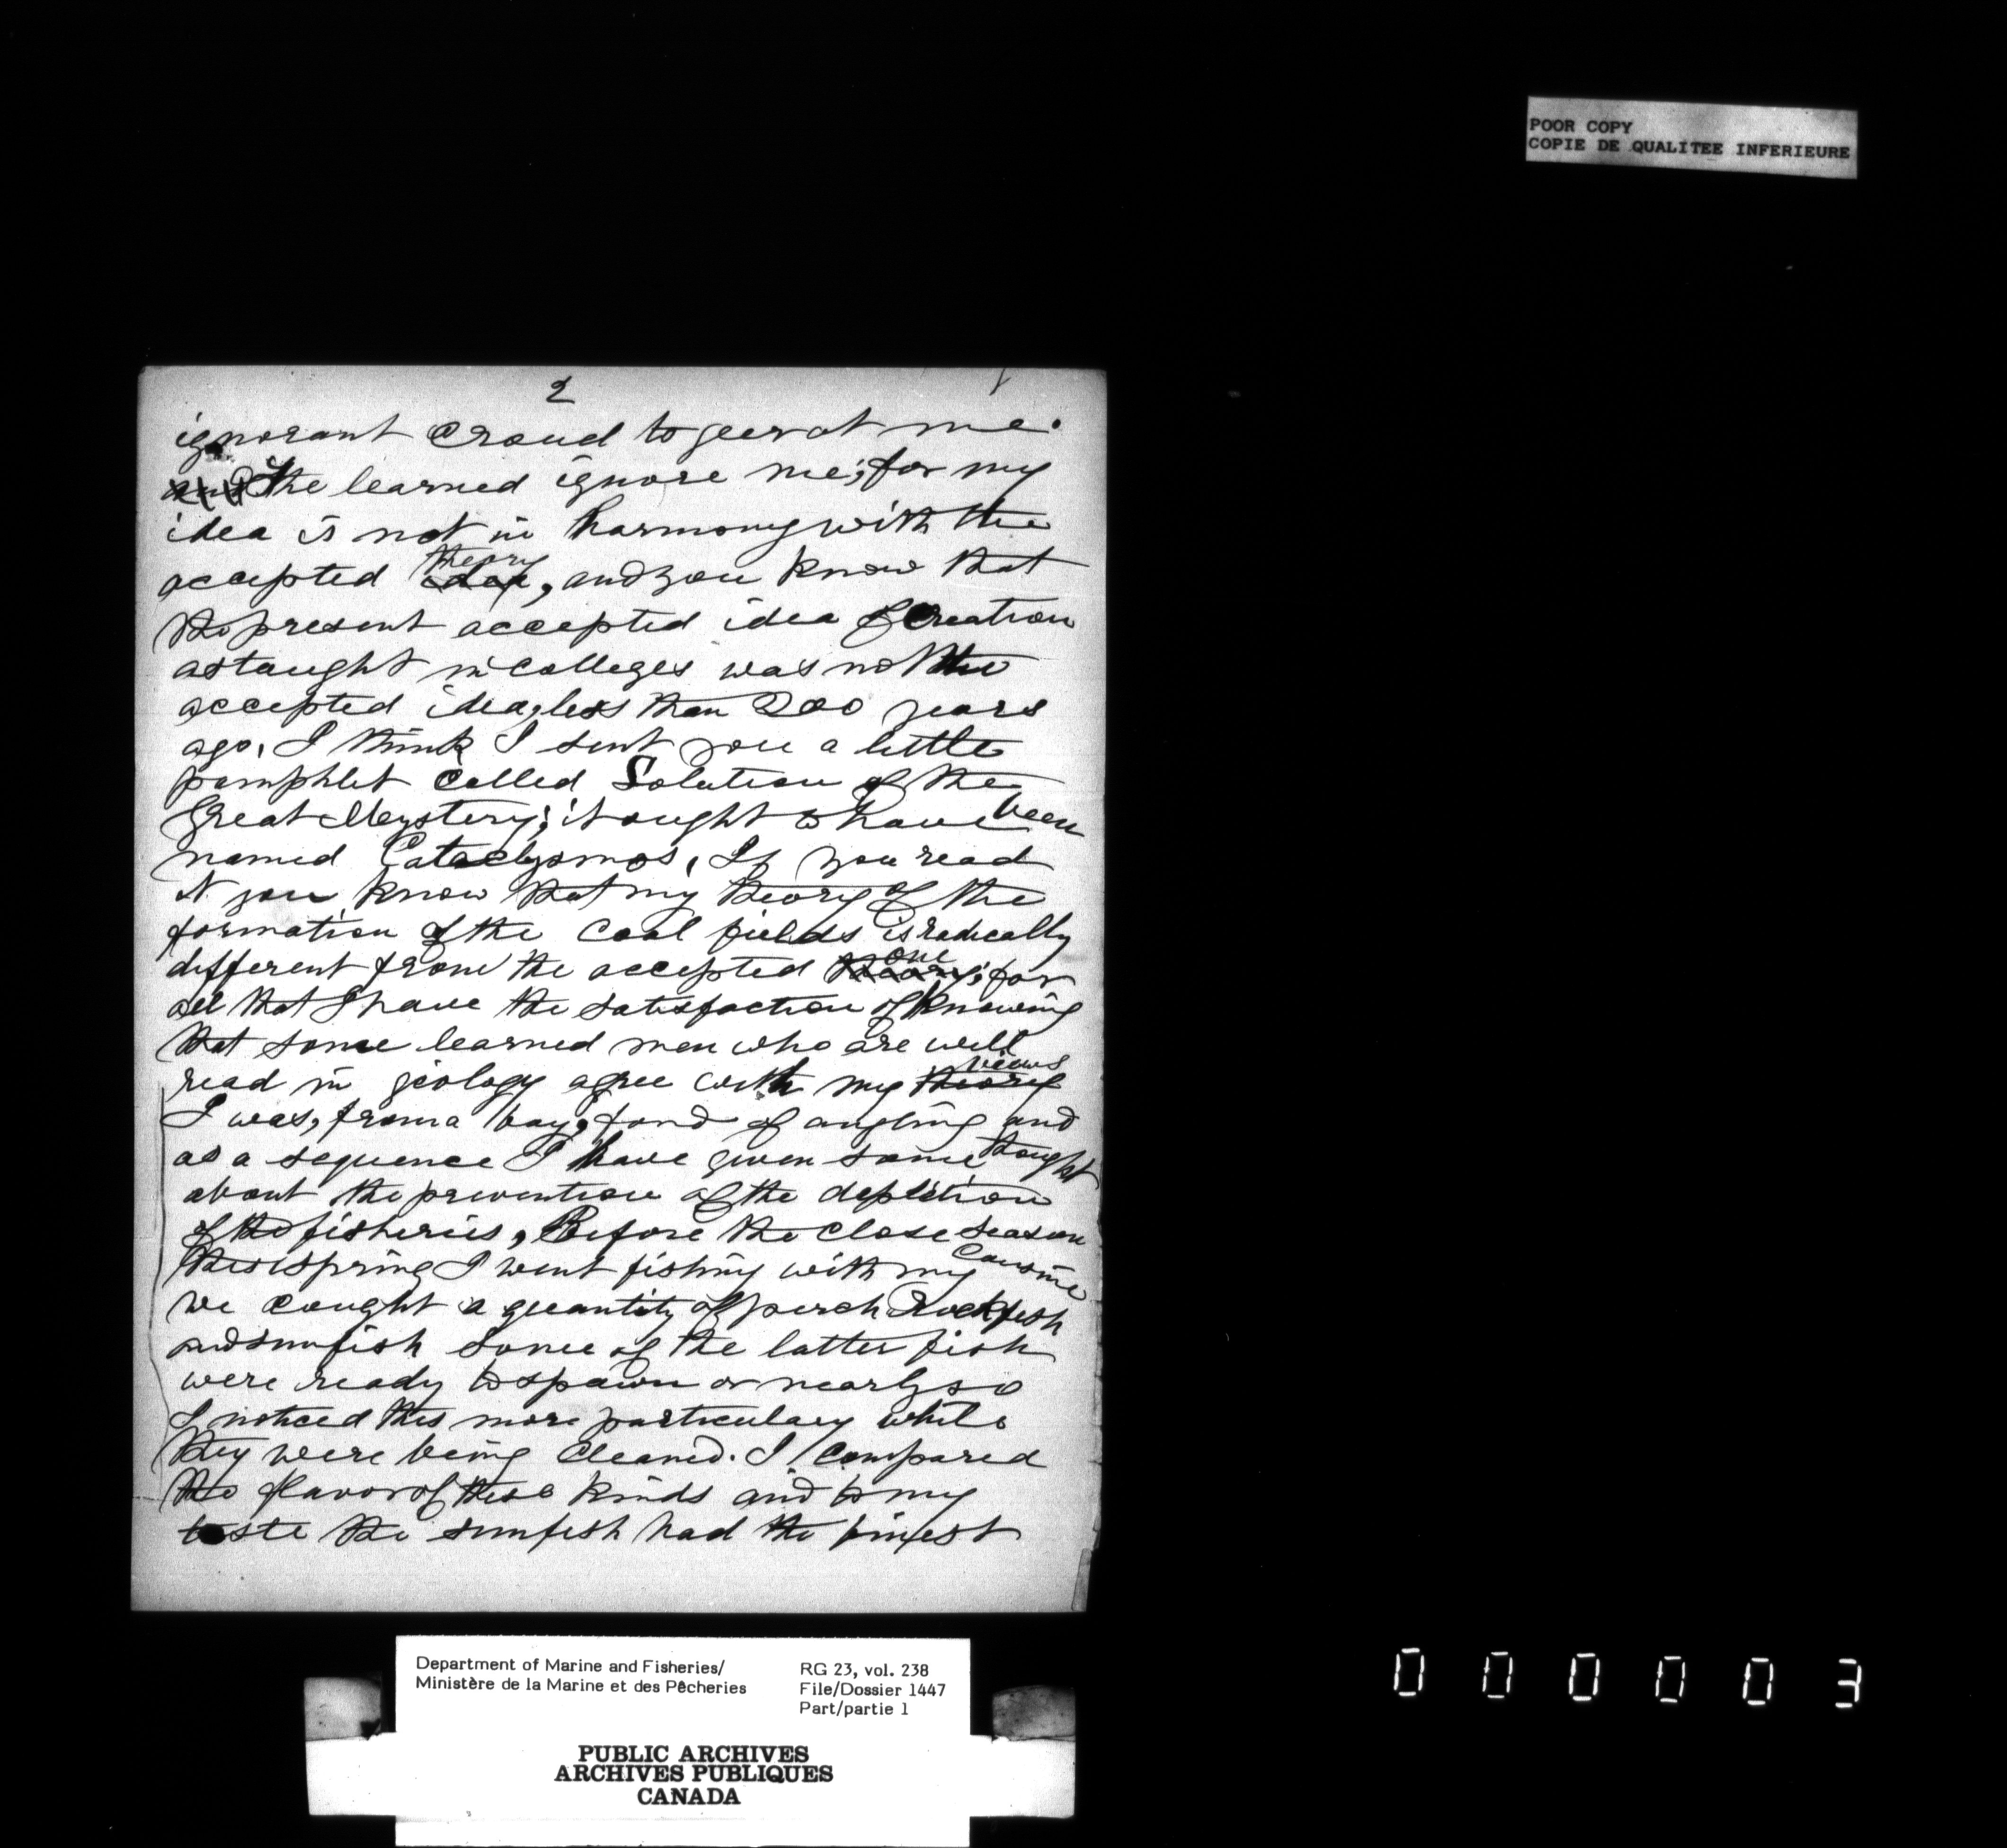 POOR COPY
COPIE DE QUALITEE INFERIEURE
2
ignorant croud to jeer at me.
and The learned ignore me; for my
idea is not in harmony with the
accepted idea theory, and you know that
the present accepted idea of Creation
as taught in colleges was not the
accepted idea, less than 200 years
ago, I think I sent you a little
pamphlet called Solution of the
Great Mystery; it ought to have been
named Cataclysmos, If you read
it you know that my theory of the
formation of the coal fields is radically
different from the accepted theory one; for
all that I have the satisfaction of knowing
that some learned men who are well
read in geology agree with my theory views
I was, from a boy, fond of angling and
as a sequence I have given some thought
about the prevention of the depletion
of the fisheries, Before the close season
this spring I went fishing with my cousins
we caught a quantity of perch Rockfish
and sunfish some of the latter fish
were ready to spawn or nearly so
I noticed this more particulary while
they were being cleaned. I compared
the flavor of these kinds and to my
taste the sunfish had the finest
Department of Marine and Fisheries/
Ministère de la Marine et des Pêcheries
RG 23, vol. 238
File/Dossier 1447
Part/partie 1
PUBLIC ARCHIVES
ARCHIVES PUBLIQUES
CANADA
000003